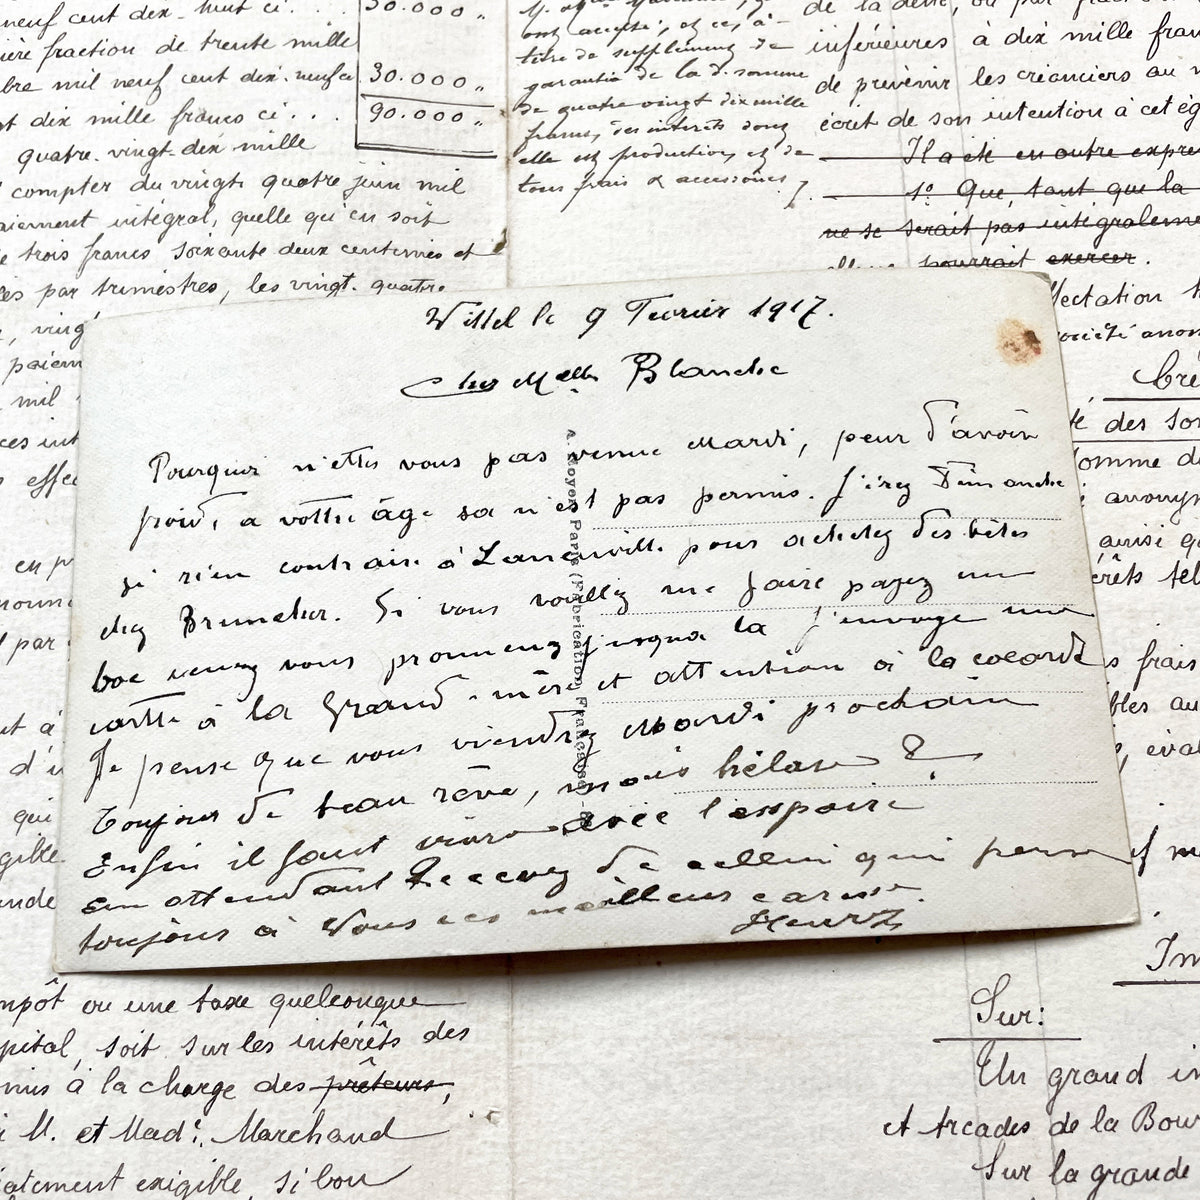 neuf cent dix-huit ci . . . 30.000 "
ière fraction de trente mille
bre mil neuf cent dix-neuf ci 30.000 "
t dix mille francs ci . . . 90.000 "
quatre-vingt-dix mille
compter du vingt quatre juin mil
aiement intégral, quelle qu'en soit
e trois francs soixante deux centimes et
es par trimestres, les vingt-quatre
ont accepté, et ce, à
titre de supplément de
garantie de la d. somme
de quatre vingt dix mille
francs, des intérêts dont
elle est productive, et de
tous frais & accessoires
inférieures à dix mille fran
de prévenir les créanciers au m
écrit de son intention à cet ég
Il a été en outre expre
1° Que, tant que la
ne se serait pas intégraleme
pourrait exercer.
vingt
paiem
mil
ces int
effec
en p
par
ut à
d'i
qui
gible
ande
Vittel le 9 Fevrier 1917.
Cher Melle Blanche
Pourquoi n'ettes vous pas venue Mardi, peur d'avoir
froid, a votte âge sa n'est pas permis. J'irez Dimanche
si rien contraire à Laneuville pour achetez des bêtes
chez Brunclur. Si vous voullez me faire payez un
boc venez vous promenez jusqua la j'envoye une
cartte à la Grand-mère et attention a la cocarde
Je pense que vous viendrez Mardi prochain
Toujour de beau rêve, mais hélas ?
Enfin il faut vivre avec l'espoire
en attendant Recevez de cellui qui pense
toujours à Vous ces meilleurs caresse.
Henry
A. Noyer, Paris (Fabrication Française)
fectation
ociété anon
Cré
té des So
omme d
anonym
ainsi q
érêts tel
s frais
bles au
éval
if m
Im
mpôt ou une taxe quelconque
pital, soit sur les intérêts des
mis à la charge des prêteurs,
M. et Mad. Marchand
iatement exigible, si bon
Sur:
Un grand in
et Arcades de la Bour
Sur la grande